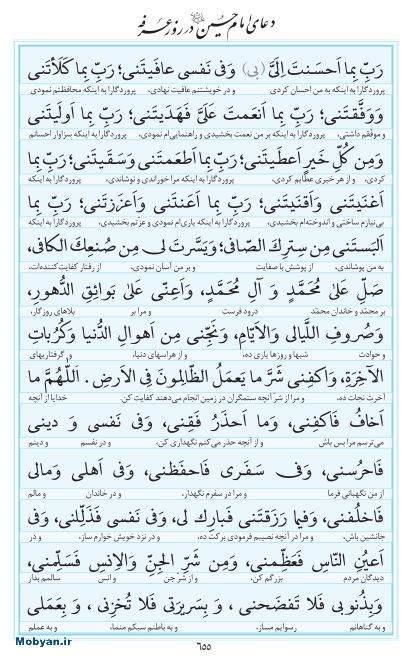 دعای امام حسین در روز عرفه
رَبِّ بِما اَحسَنتَ اِلَیَّ (بی) وَفی نَفسی عافَیتَنی؛ رَبِّ بِما کَلَأتَنی
پروردگارا به اینکه به من احسان کردی و در خویشتنم عافیت نهادی، پروردگارا به اینکه محافظتم نمودی
وَوَفَّقتَنی؛ رَبِّ بِما اَنعَمتَ عَلَیَّ فَهَدَیتَنی؛ رَبِّ بِما اَولَیتَنی
و موفقم داشتی، پروردگارا به اینکه بر من نعمت بخشیدی و راهنمایی‌ام نمودی، پروردگارا به اینکه سزاوار احسانم
وَمِن کُلِّ خَیرٍ اَعطَیتَنی؛ رَبِّ بِما اَطعَمتَنی وَسَقَیتَنی؛ رَبِّ بِما
کردی، و از هر خیری عطایم کردی، پروردگارا به اینکه مرا خوراندی و نوشاندی، پروردگارا به اینکه
اَغنَیتَنی وَاَقنَیتَنی؛ رَبِّ بِما اَعَنتَنی وَاَعزَزتَنی؛ رَبِّ بِما
بی‌نیازم ساختی و اندوخته‌ام بخشیدی، پروردگارا به اینکه یاری‌ام نمودی و عزتم بخشیدی، پروردگارا به اینکه
اَلبَستَنی مِن سِترِکَ الصّافی؛ وَیَسَّرتَ لی مِن صُنعِکَ الکافی،
به من پوشاندی، از پوشش با صفایت و بر من آسان نمودی، از رفتار کفایت‌کننده‌ات،
صَلِّ عَلی مُحَمَّدٍ وَ آلِ مُحَمَّدٍ، وَاَعِنّی عَلی بَوائِقِ الدُّهورِ،
بر محمّد و خاندان محمّد درود فرست و مرا بر بلاهای روزگار،
وَصُروفِ اللَّیالی وَالاَیّامِ، وَنَجِّنی مِن اَهوالِ الدُّنیا وَکُرُباتِ
و حوادث شبها و روزها یاری ده، و از هراسهای دنیا، و گرفتاریهای
الآخِرَةِ، وَاکفِنی شَرَّ ما یَعمَلُ الظّالِمونَ فِی الاَرضِ. اَللّهُمَّ ما
آخرت نجات ده، و مرا از شرّ آنچه ستمگران در زمین انجام می‌دهند کفایت کن. خدایا از آنچه
اَخافُ فَاکفِنی، وَما اَحذَرُ فَقِنی، وَفی نَفسی وَ دینی
می‌ترسم مرا بس باش و از آنچه حذر می‌کنم نگهداری کن، و در نفسم و دینم
فَاحرُسنی، وَفی سَفَری فَاحفَظنی، وَفی اَهلی وَمالی
از من نگهبانی فرما و مرا در سفرم نگهدار، و در خاندان و مالم
فَاخلُفنی، وَفیما رَزَقتَنی فَبارِک لی، وَفی نَفسی فَذَلِّلنی، وَفی
جانشین باش، و مرا در آنچه نصیبم فرمودی برکت ده، و در نزد خویش خوارم ساز، و در
اَعیُنِ النّاسِ فَعَظِّمنی، وَمِن شَرِّ الجِنِّ وَالاِنسِ فَسَلِّمنی،
دیدگان مردم بزرگم کن، و از شرّ جن و انس سالمم بدار
وَبِذُنوبی فَلا تَفضَحنی، وَ بِسَریرَتی فَلا تُخزِنی، وَ بِعَمَلی
و به گناهانم رسوایم مساز، و به باطنم سبکم منما، و به عملم
Mobyan.ir
٦٥٥